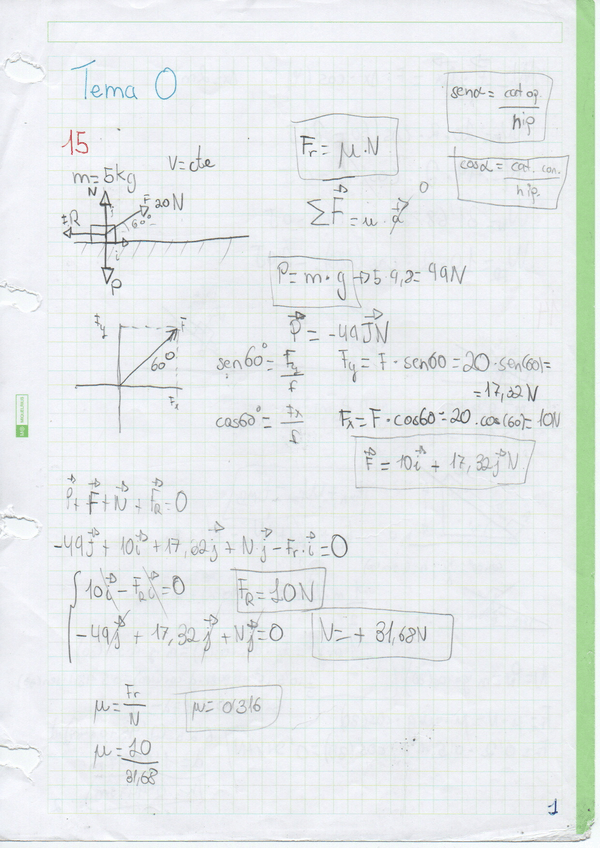 Tema 0
senα = cat op. / hip
15
Fr = μ·N
V=cte
m=5kg
cosα = cat. con. / hip.
N
F 20N
60º
FR
i
P
ΣF = m·a 0
P = m·g → 5 9,8 = 49N
P = -49 J N
Fy
F
60º
Fx
sen60º = Fy / F
Fy = F · sen60 = 20 · sen(60) =
= 17,32N
cos60º = Fx / F
Fx = F · cos60 = 20 · cos(60) = 10N
F = 10i + 17,32j N
P + F + N + FR = 0
-49j + 10i + 17,62j + N·j - Fr·i = 0
10i - FR i = 0
FR = 10N
-49j + 17,32j + Nj = 0
N = + 31,68N
μ = Fr / N
μ = 0'316
μ = 10 / 31,68
1